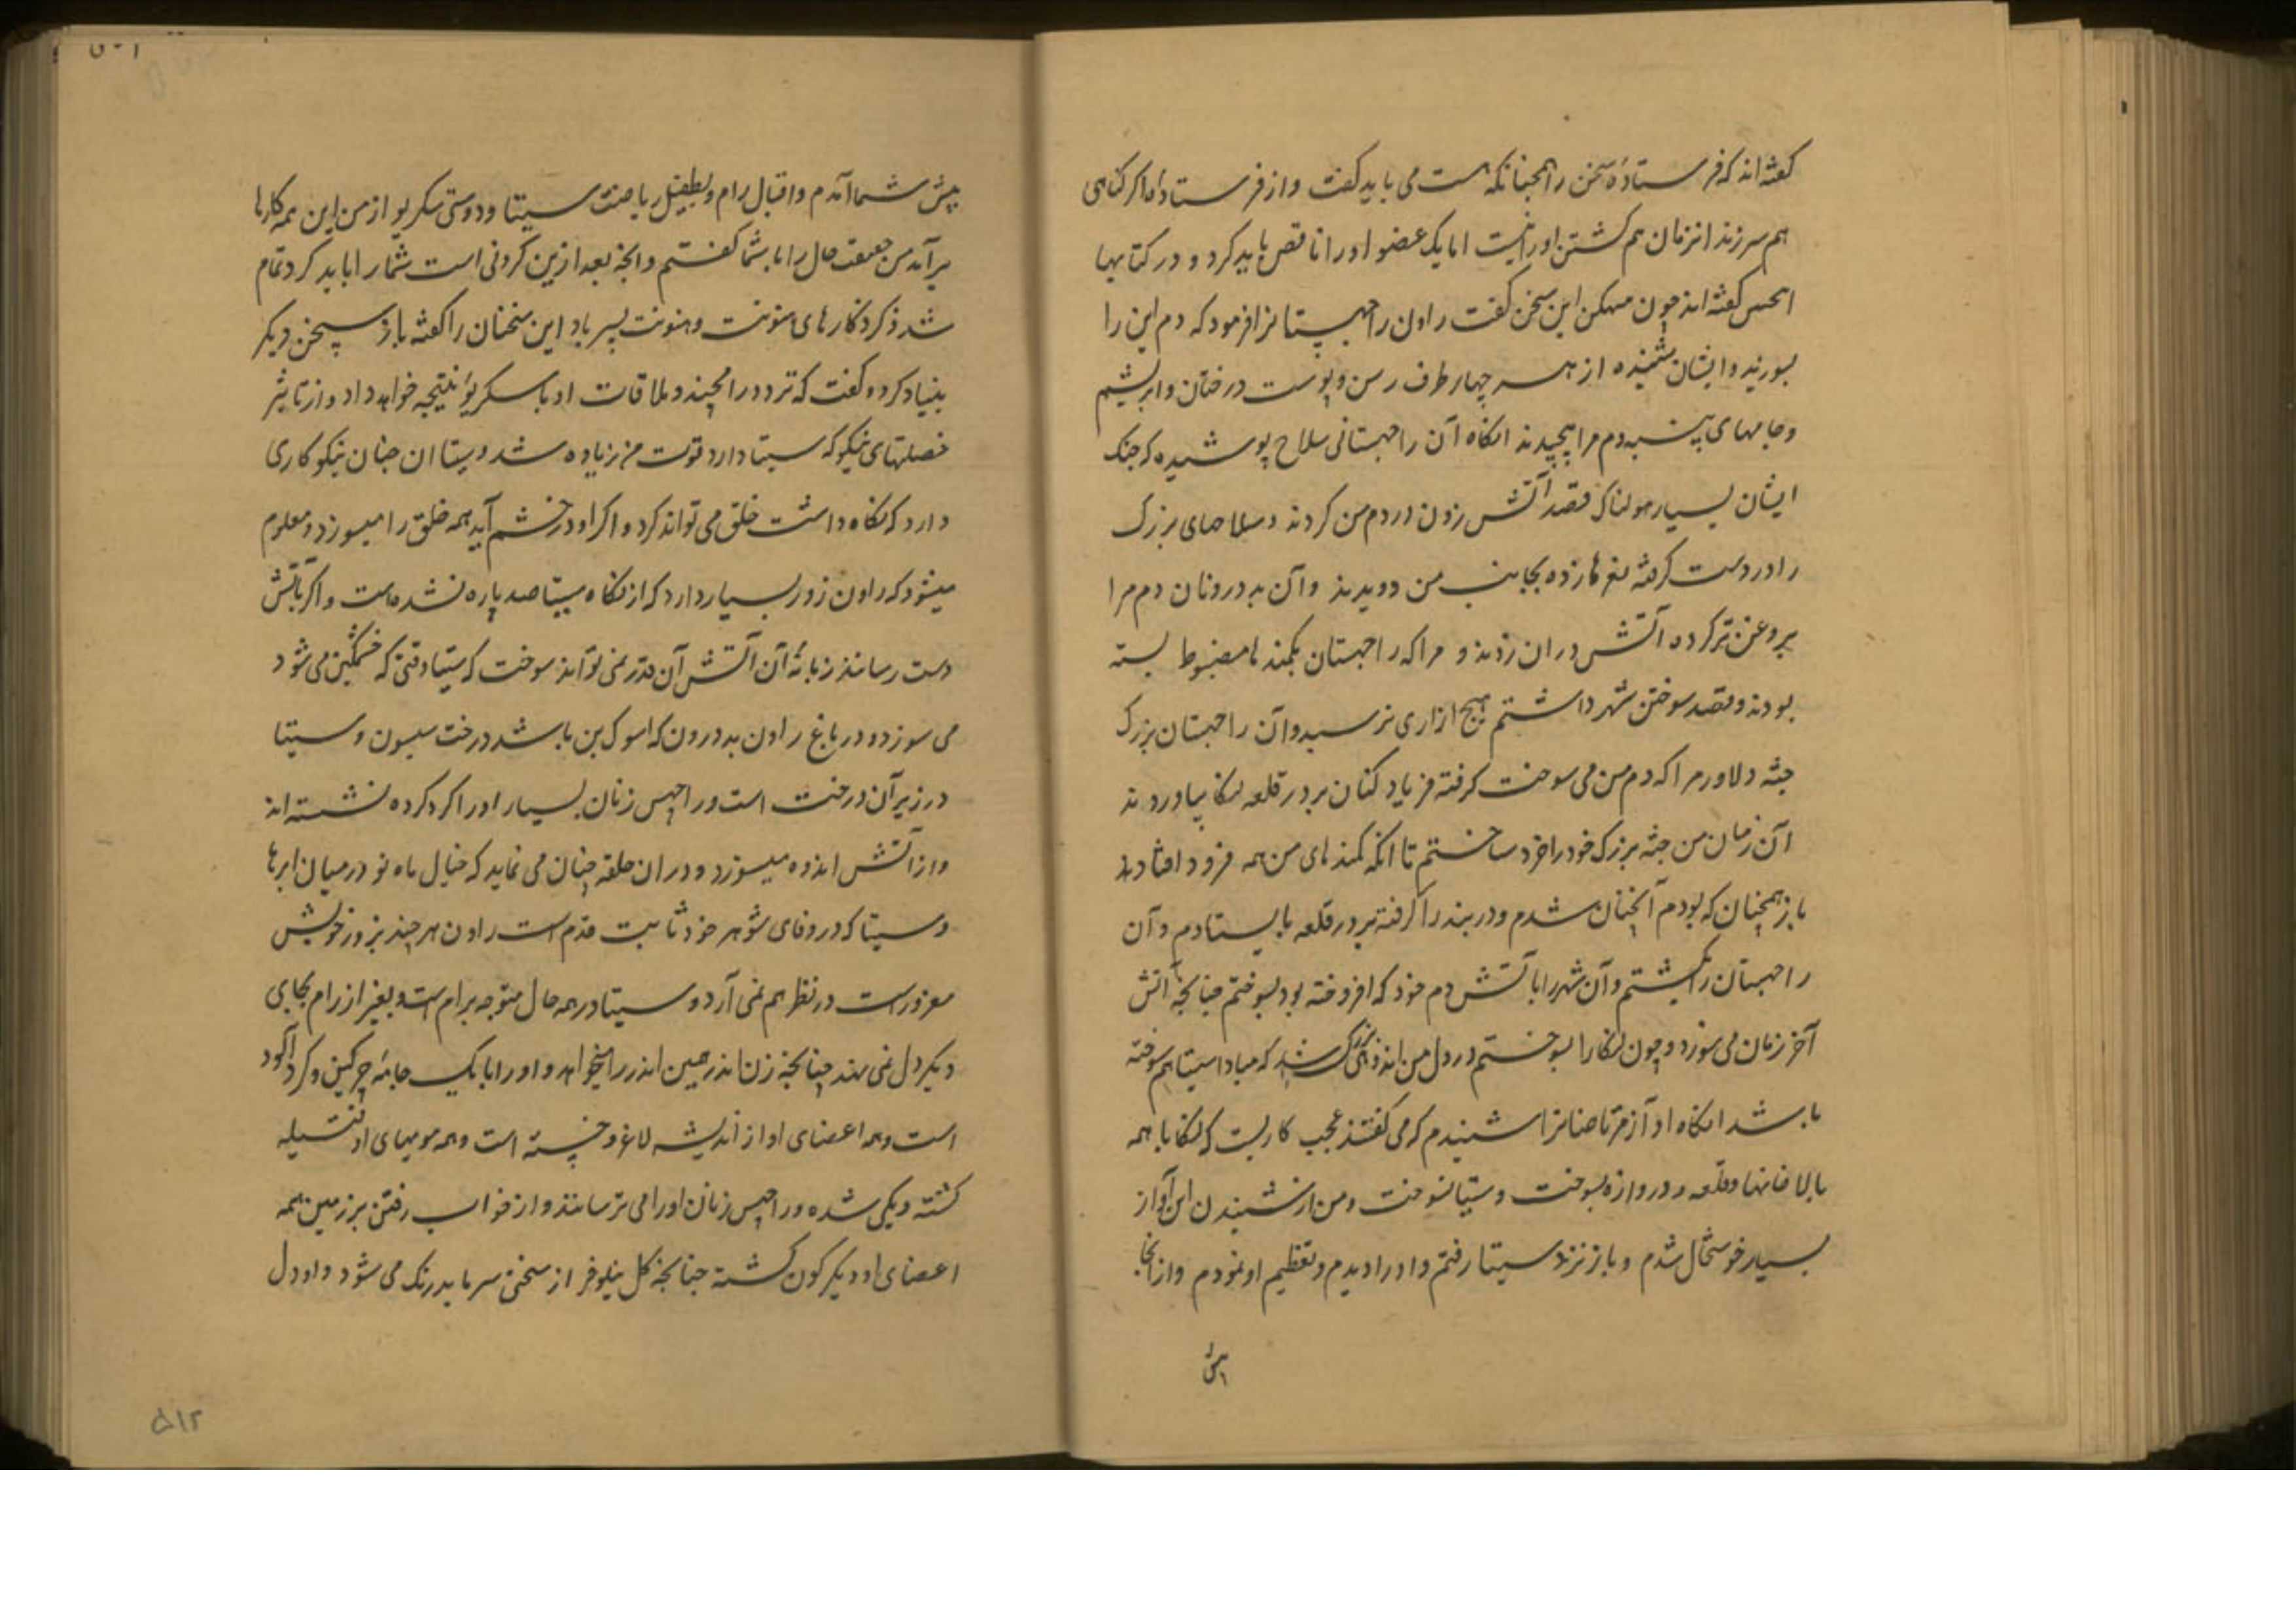 گفته‌اند که فرستاده سخن را همچنانکه هست می باید گفت و از فرستاده اگر گناهی
هم سر زند انزمان هم کشتن او را نیست اما یک عضو او را ناقص باید کرد و در کتابها
گفته اند چون این سخن گفت راون راچهستانرا فرمود که دم این را
بسوزید و ایشان شنیده از هر چهار طرف رسن و پوست درختان و ابریشم
و جامهای پنبه بدم مرا پیچیدند انگاه آن راچهستانی سلاح پوشیده که جنگ
ایشان بسیار هولناک قصد آتش زدن در دم من کردند و سلاحهای بزرگ
را در دست گرفته نعرها زده بجانب من دویدند و آن بدرونان دم مرا
بروغن تر کرده آتش دران زدند و مرا که راچهستان بکمندها مضبوط بسته
بودند و قصد سوختن شهر داشتم هیچ ازاری نرسید و آن راچهستان بزرگ
جثه دلاور مرا که دم من می سوخت گرفته فریاد کنان بر در قلعه لنکا بیاوردند
آن زمان من جثه بزرگ خود را خرد ساختم تا انکه کمندهای من همه فرود افتادند
باز همچنان که بودم آنچنان شدم و دربند را گرفته بر در قلعه بایستادم و آن
راچهستان را کشتم و آن شهر را با آتش دم خود که افروخته بود بسوختم چنانچه آتش
آخر زمان می سوزد و چون لنکا را بسوختم در دل من اندوهی بزرگ شد که مبادا سیتا هم سوخته
باشد انگاه اواز شنیدم که می گفتند عجب کاریست که لنکا با همه
بالاخانها و قلعه و دروازه بسوخت و سیتا نسوخت و من از شنیدن این آواز
بسیار خوشحال شدم و باز نزد سیتا رفتم و او را دیدم و تعظیم او نمودم و ازانجا
پیش
پیش شما آمدم و اقبال رام و بطفیل ریاضت سیتا و دوستی سکریو از من این همه کارها
برآمد من حقیقت حال را با شما گفتم و انچه بعد ازین کردنی است شما را باید کرد تمام
شد ذکر کارهای هنونت و هنونت پسر باد این سخنان را گفته باز سخن دیگر
بنیاد کرد و گفت که تردد رامچند و ملاقات او با سکریو نتیجه خواهد داد و از تاثیر
خصلتهای نیکو که سیتا دارد قوت من زیاده شد و سیتا ان چنان نیکوکاری
دارد که نگاه داشت خلق می تواند کرد و اگر او در خشم آید همه خلق را میسوزد و معلوم
میشود که راون زور بسیار دارد که از نگاه سیتا صد پاره نشده است و اگر بآتش
دست رسانند زبانهٔ آن آتش آن قدر نمی تواند سوخت که سیتا وقتی که خشمگین می شود
می سوزد و در باغ راون بد درون که اسوک بن باشد درخت سیسون و سیتا
در زیر آن درخت است و راچهس زنان بسیار او را گرد کرده نشسته اند
و از آتش اندوه میسوزد و دران حلقه چنان می نماید که خیال ماه نو در میان ابرها
و سیتا که در وفای شوهر خود ثابت قدم است راون هر چند بزور خویش
مغرورست در نظر هم نمی آرد و سیتا در همه حال متوجه برام است و بغیر از رام بجای
دیگر دل نمی بندد چنانچه زن اندر همین اندر را میخواهد و او را با یک جامهٔ چرکین و گرد آلود
است و همه اعضای او از اندیشه لاغر و خسته است و همه مویهای او فتیله
گشته و یکی شده و راچهس زنان او را می ترسانند و از خواب رفتن بر زمین همه
اعضای او دیگرگون گشته چنانچه گل نیلوفر از سختی سرما بدرنگ می شود و او دل
۵۱۲